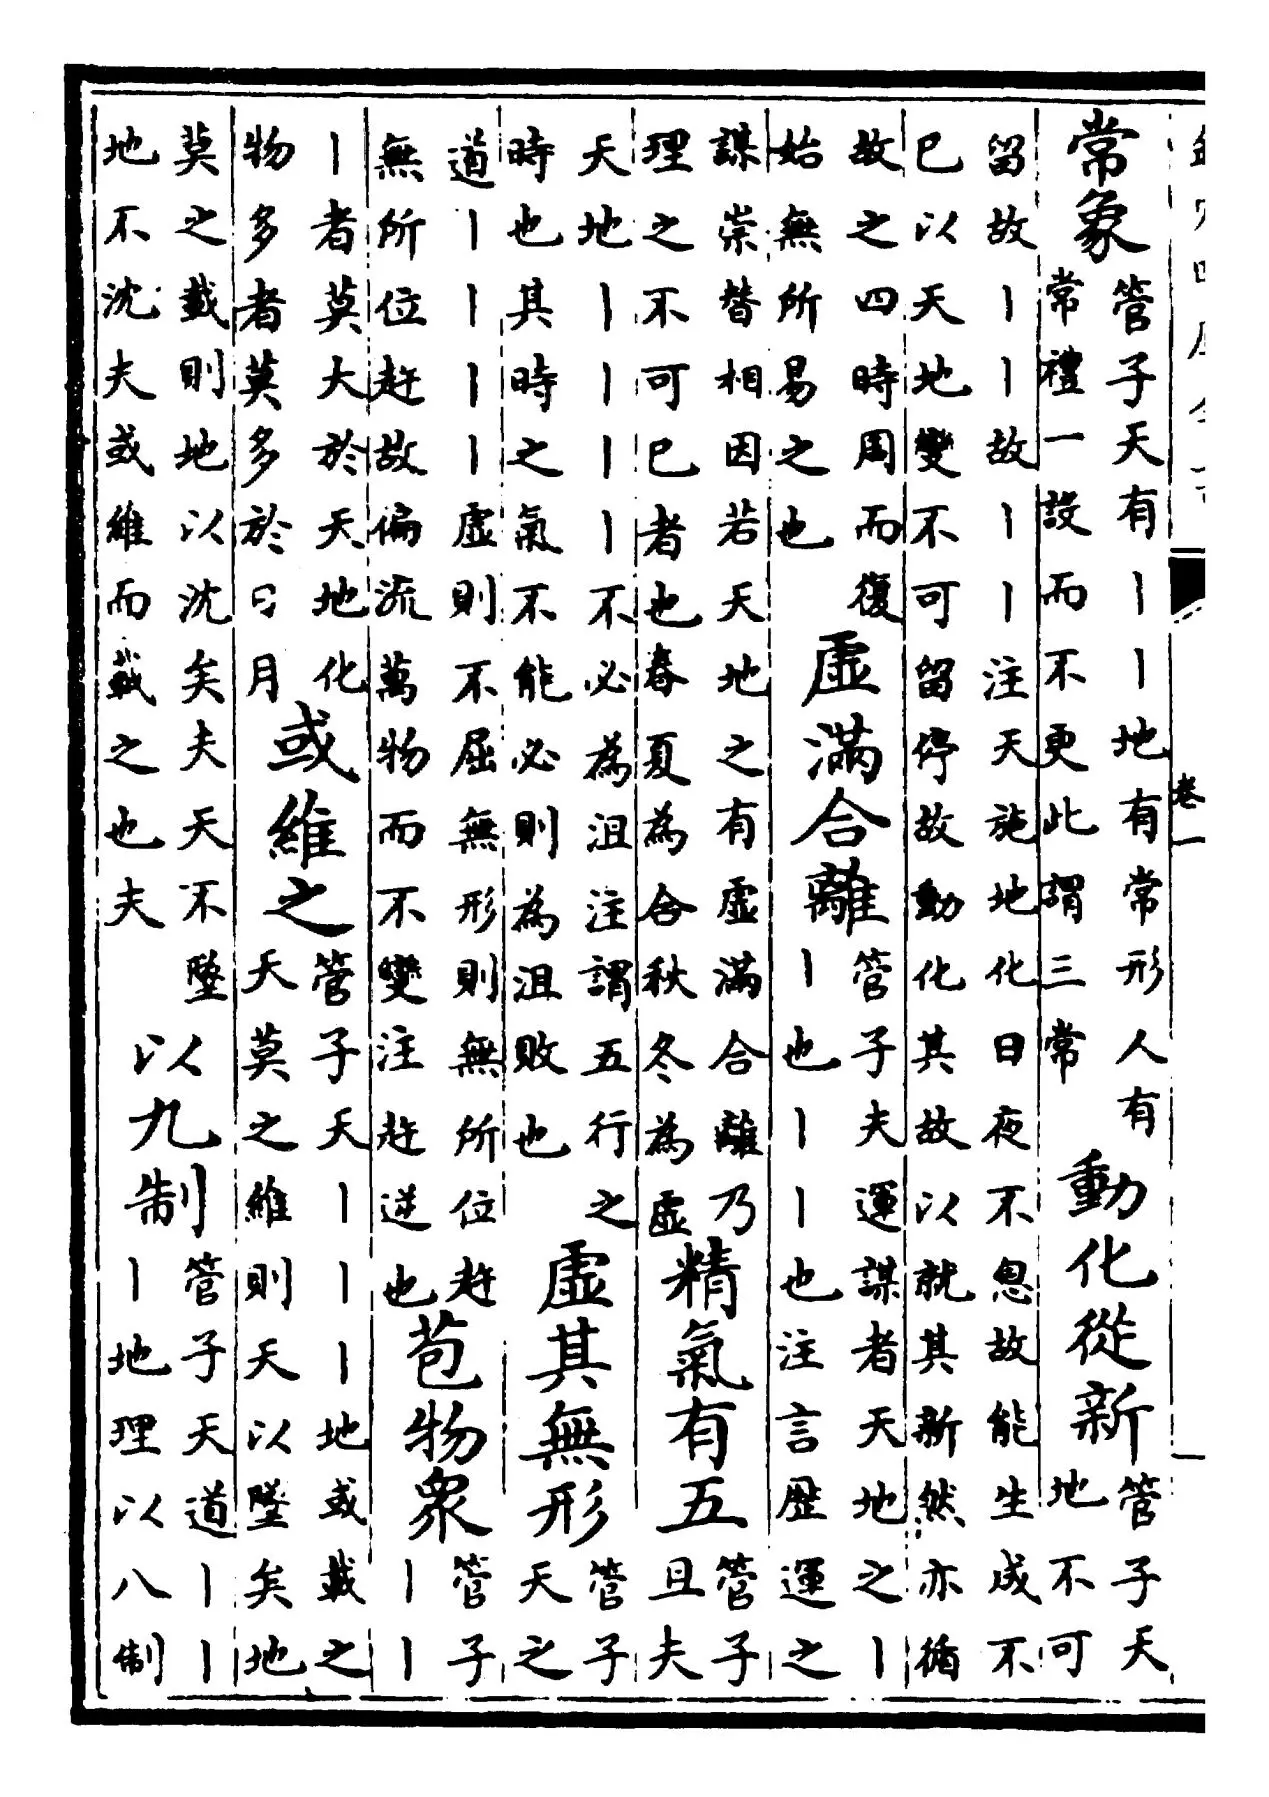 常象
管子天有丨丨地有常形人有
常禮一設而不更此謂三常
動化從新
管子天
地不可
留故丨丨故丨丨注天施地化日夜不息故能生成不
已以天地變不可留停故動化其故以就其新然亦循
故之四時周而復
始無所易之也
虛滿合離
管子夫運謀者天地之丨
丨也丨丨也注言歷運之
謀崇替相因若天地之有虛滿合離乃
理之不可已者也春夏為合秋冬為虛
精氣有五
管子
且夫
天地丨丨丨丨不必為沮注謂五行之
時也其時之氣不能必則為沮敗也
虛其無形
管子
天之
道丨丨丨丨虛則不屈無形則無所位赶
無所位赶故偏流萬物而不變注赶逆也
苞物衆
管子
丨丨
丨者莫大於天地化
物多者莫多於日月
或維之
管子天丨丨丨地或載之
天莫之維則天以墜矣地
莫之載則地以沈矣夫天不墜
地不沈夫或維而載之也夫
以九制
管子天道丨丨
丨地理以八制
卷一